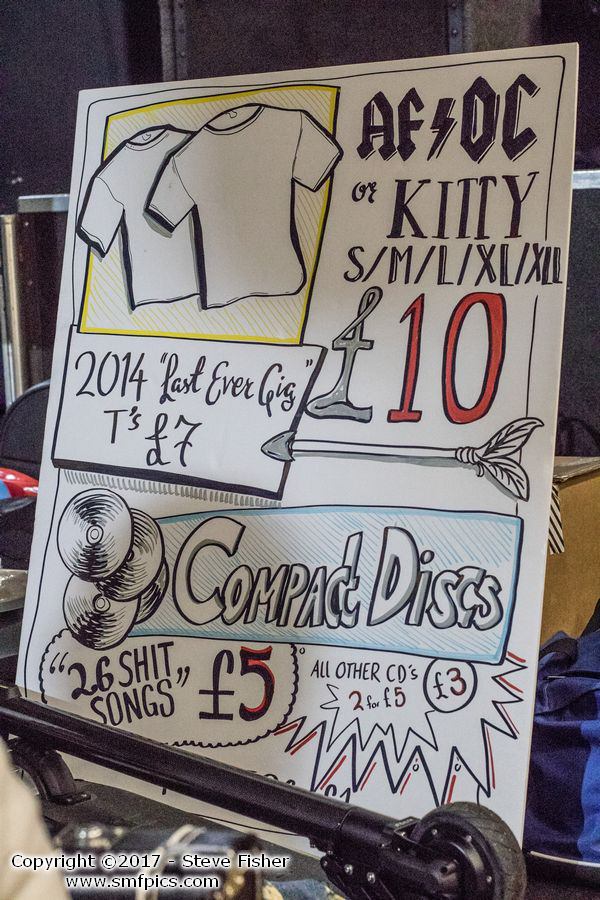 AF⚡DC
or KITTY
S/M/L/XL/XXL
£10
2014 "Last Ever Gig"
T's £7
COMPACT DISCS
"26 SHIT SONGS" £5
ALL OTHER CD's £3
2 for £5
£1
Copyright ©2017 - Steve Fisher
www.smfpics.com